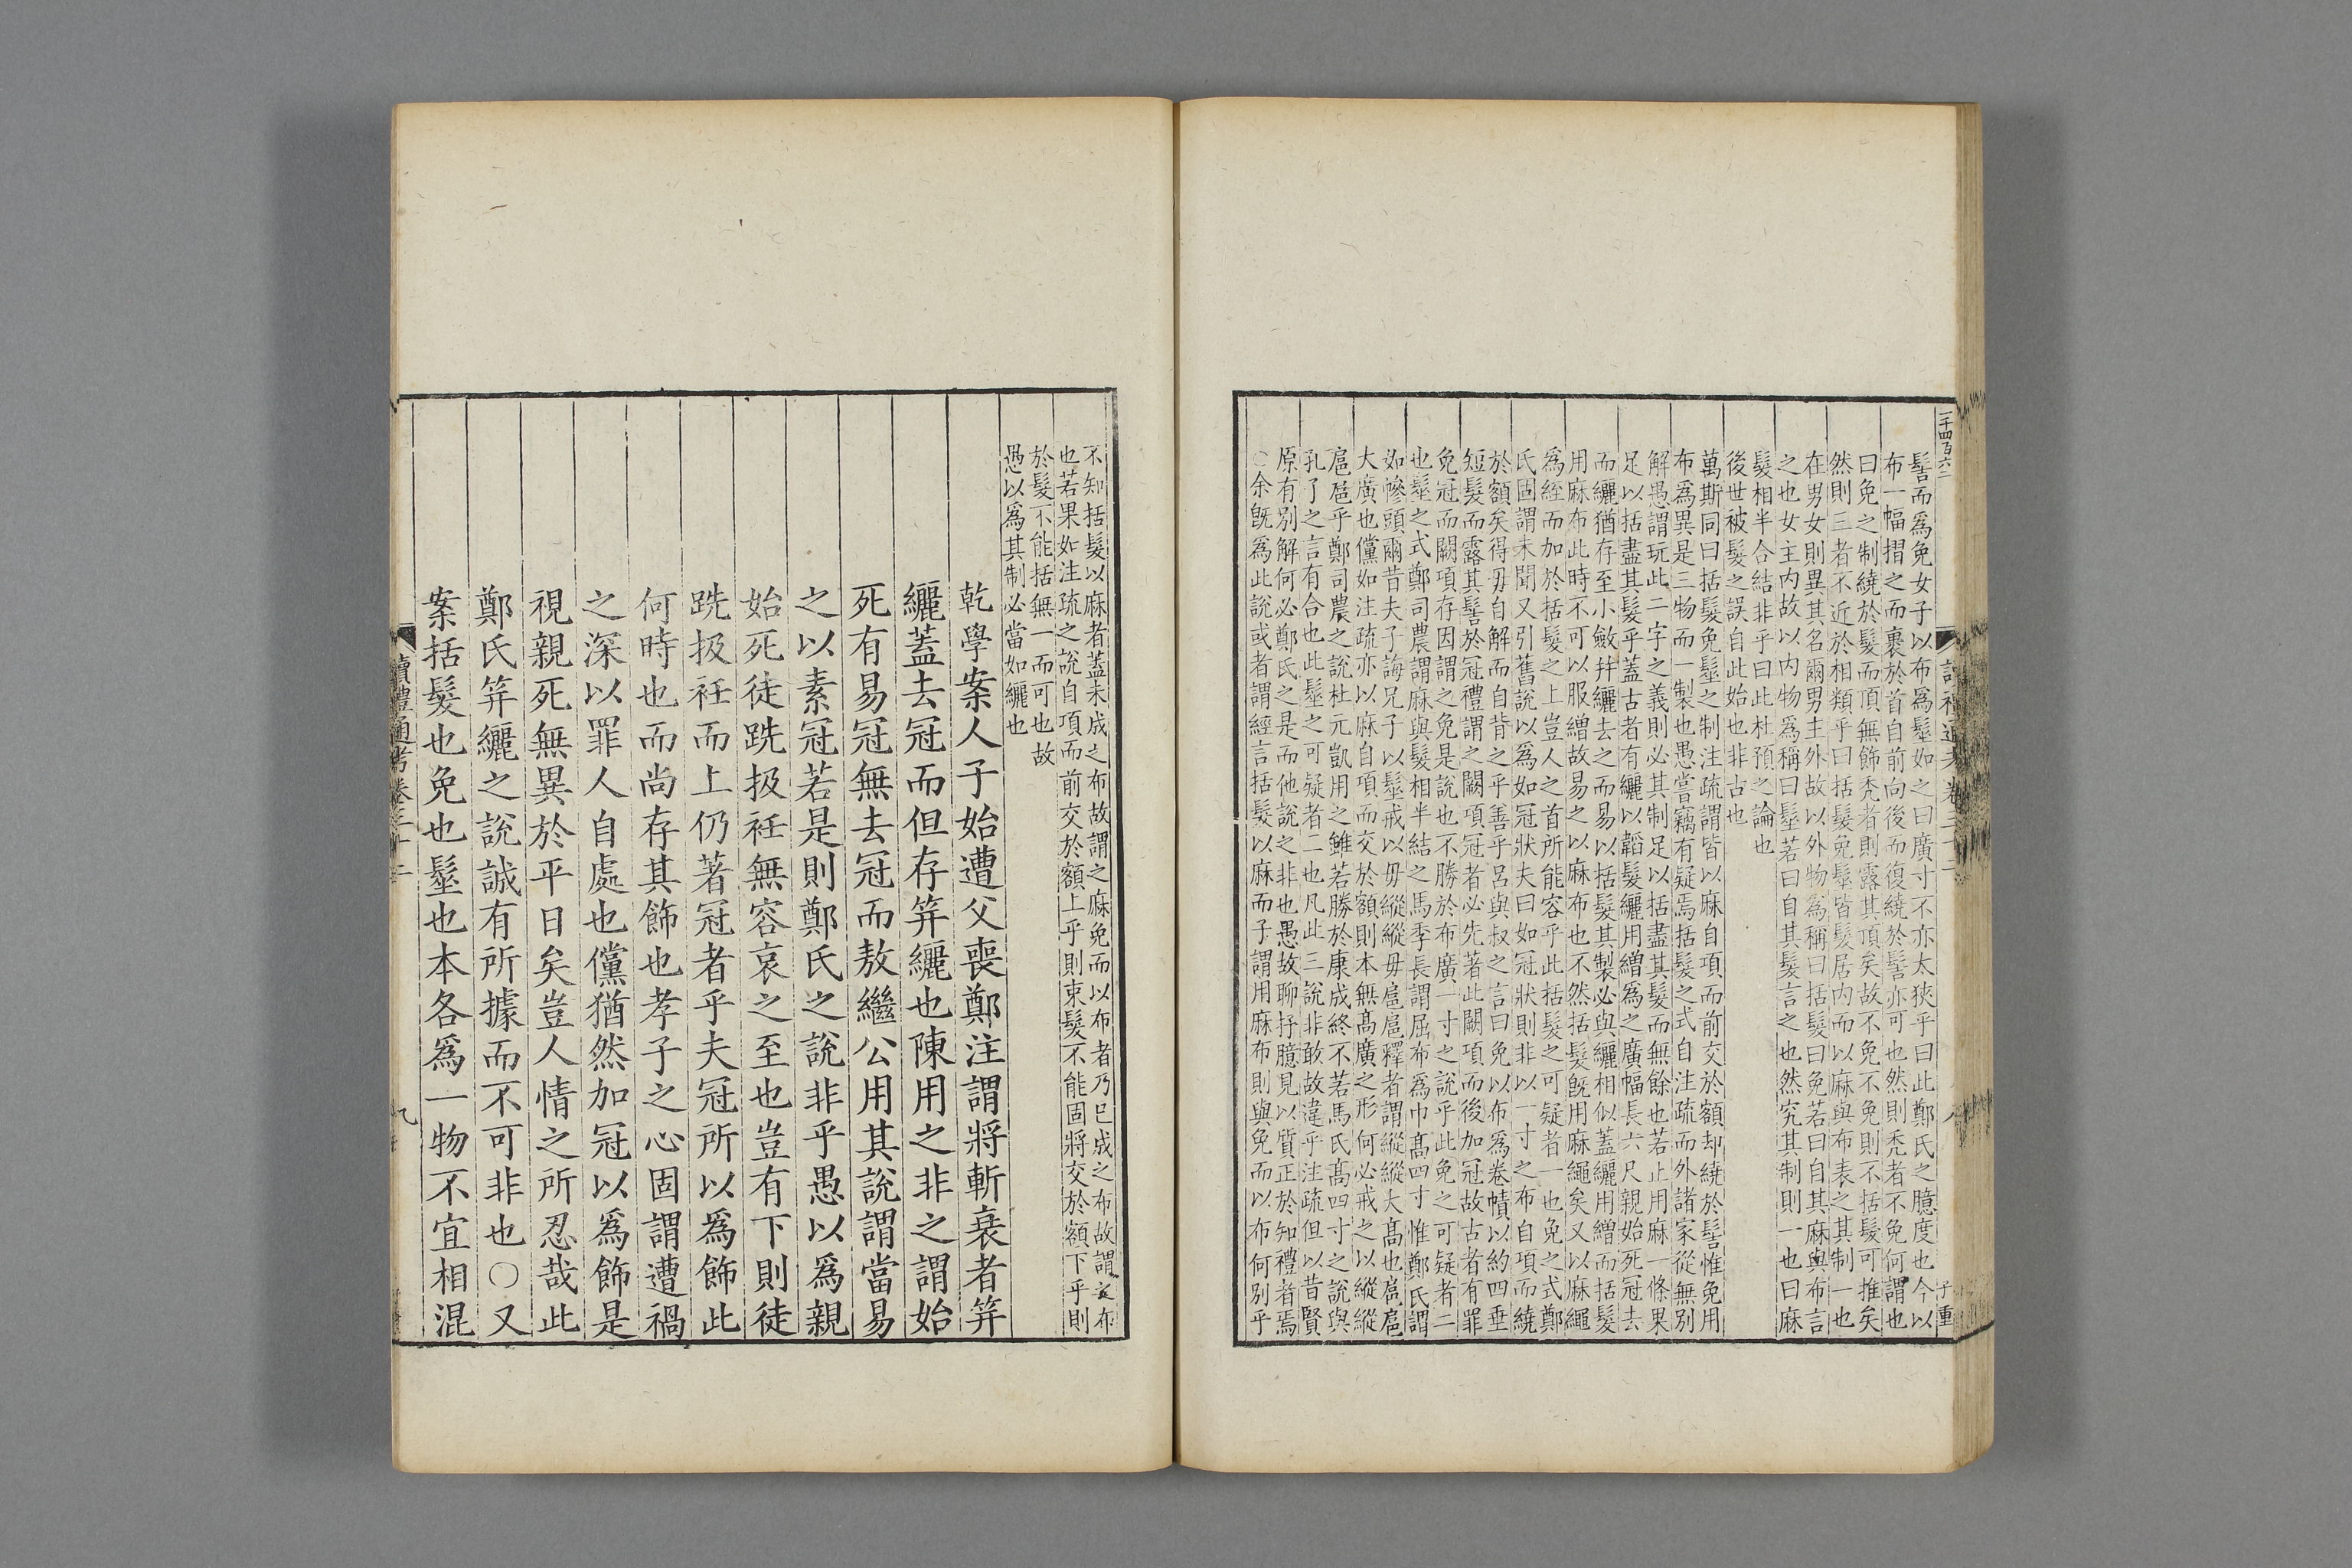 二千四百六二
讀禮通考卷三十二
八
髻而爲免女子以布爲髽如之曰廣寸不亦太狹乎曰此鄭氏之臆度也今以
布一幅摺之而裹於首自前向後而復繞於髻亦可也然則禿者不免何謂也
曰免之制繞於髮而頂無飾禿者則露其頂矣故不免不免則不括髮可推矣
然則三者不近於相類乎曰括髮免髽皆髮居内而以麻與布表之其制一也
在男女則異其名爾男主外故以外物爲稱曰括髮曰免若曰自其麻與布言
之也女主内故以内物爲稱曰髽若曰自其髮言之也然究其制則一也曰麻
髮相半合結非乎曰此杜預之論也
後世被髮之誤自此始也非古也
萬斯同曰括髮免髽之制注疏謂皆以麻自項而前交於額却繞於髻惟免用
布爲異是三物而一製也愚嘗竊有疑焉括髮之式自注疏而外諸家從無別
解愚謂玩此二字之義則必其制足以括盡其髮而無餘也若止用麻一條果
足以括盡其髮乎蓋古者有纚以韜髮纚用繒爲之廣幅長六尺親始死冠去
而纚猶存至小斂幷纚去之而易以括髮其製必與纚相似蓋纚用繒而括髮
用麻布此時不可以服繒故易之以麻布也不然括髮旣用麻繩矣又以麻繩
爲絰而加於括髮之上豈人之首所能容乎此括髮之可疑者一也免之式鄭
氏固謂未聞又引舊說以爲如冠狀夫曰如冠狀則非以一寸之布自項而繞
於額矣得毋自解而自背之乎善乎呂與叔之言曰免以布爲卷幘以約四垂
短髮而露其髻於冠禮謂之闕項冠者必先著此闕項而後加冠故古者有罪
免冠而闕項存因謂之免是說也不勝於布廣一寸之說乎此免之可疑者二
也髽之式鄭司農謂麻與髮相半結之馬季長謂屈布爲巾髙四寸惟鄭氏謂
如幓頭爾昔夫子誨兄子以髽戒以毋縱縱毋扈扈釋者謂縱縱大髙也扈扈
大廣也儻如注疏亦以麻自項而交於額則本無髙廣之形何必戒之以縱縱
扈扈乎鄭司農之說杜元凱用之雖若勝於康成終不若馬氏髙四寸之說與
孔子之言有合也此髽之可疑者二也凡此三說非敢故違乎注疏但以昔賢
原有別解何必鄭氏之是而他說之非也愚故聊抒臆見以質正於知禮者焉
○余旣爲此說或者謂經言括髮以麻而子謂用麻布則與免而以布何別乎
不知括髮以麻者蓋未成之布故謂之麻免而以布者乃已成之布故謂之布
也若果如注疏之說自項而前交於額上乎則束髮不能固將交於額下乎則
於髮不能括無一而可也故
愚以爲其制必當如纚也
乾學案人子始遭父喪鄭注謂將斬衰者笄
纚蓋去冠而但存笄纚也陳用之非之謂始
死有易冠無去冠而敖繼公用其說謂當易
之以素冠若是則鄭氏之說非乎愚以爲親
始死徒跣扱衽無容哀之至也豈有下則徒
跣扱衽而上仍著冠者乎夫冠所以爲飾此
何時也而尚存其飾也孝子之心固謂遭禍
之深以罪人自處也儻猶然加冠以爲飾是
視親死無異於平日矣豈人情之所忍哉此
鄭氏笄纚之說誠有所據而不可非也○又
案括髮也免也髽也本各爲一物不宜相混
讀禮通考卷三十二
九